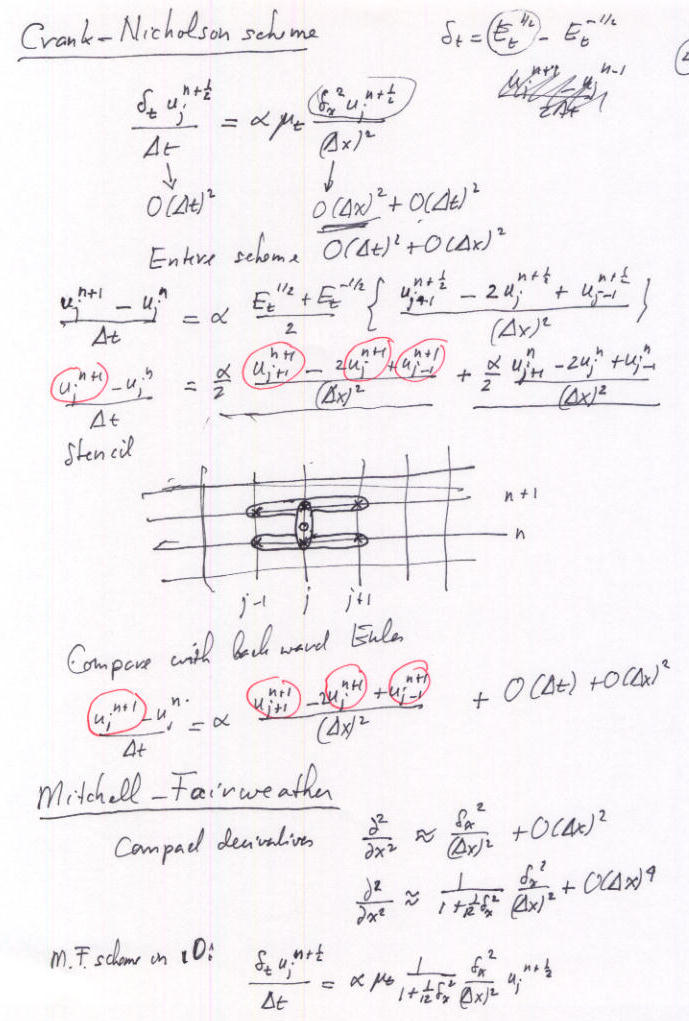 Crank-Nicholson scheme
δ_t = E_t^{1/2} - E_t^{-1/2}
δ_t u_j^{n+1/2} / Δt = α μ_t δ_x^2 u_j^{n+1/2} / (Δx)^2
↓ ↓
O(Δt)^2 O(Δx)^2 + O(Δt)^2
Entire scheme O(Δt)^2 + O(Δx)^2
(u_j^{n+1} - u_j^n) / Δt = α (E_t^{1/2} + E_t^{-1/2}) / 2 { (u_{j+1}^{n+1/2} - 2u_j^{n+1/2} + u_{j-1}^{n+1/2}) / (Δx)^2 }
(u_j^{n+1} - u_j^n) / Δt = α/2 (u_{j+1}^{n+1} - 2u_j^{n+1} + u_{j-1}^{n+1}) / (Δx)^2 + α/2 (u_{j+1}^n - 2u_j^n + u_{j-1}^n) / (Δx)^2
Stencil
n+1
n
j-1 j j+1
Compare with backward Euler
(u_j^{n+1} - u_j^n) / Δt = α (u_{j+1}^{n+1} - 2u_j^{n+1} + u_{j-1}^{n+1}) / (Δx)^2 + O(Δt) + O(Δx)^2
Mitchell-Fairweather
Compact derivatives ∂^2/∂x^2 ≈ δ_x^2 / (Δx)^2 + O(Δx)^2
∂^2/∂x^2 ≈ 1 / (1 + 1/12 δ_x^2) δ_x^2 / (Δx)^2 + O(Δx)^4
M.F. scheme in 1D:
δ_t u_j^{n+1/2} / Δt = α μ_t 1 / (1 + 1/12 δ_x^2) δ_x^2 / (Δx)^2 u_j^{n+1/2}